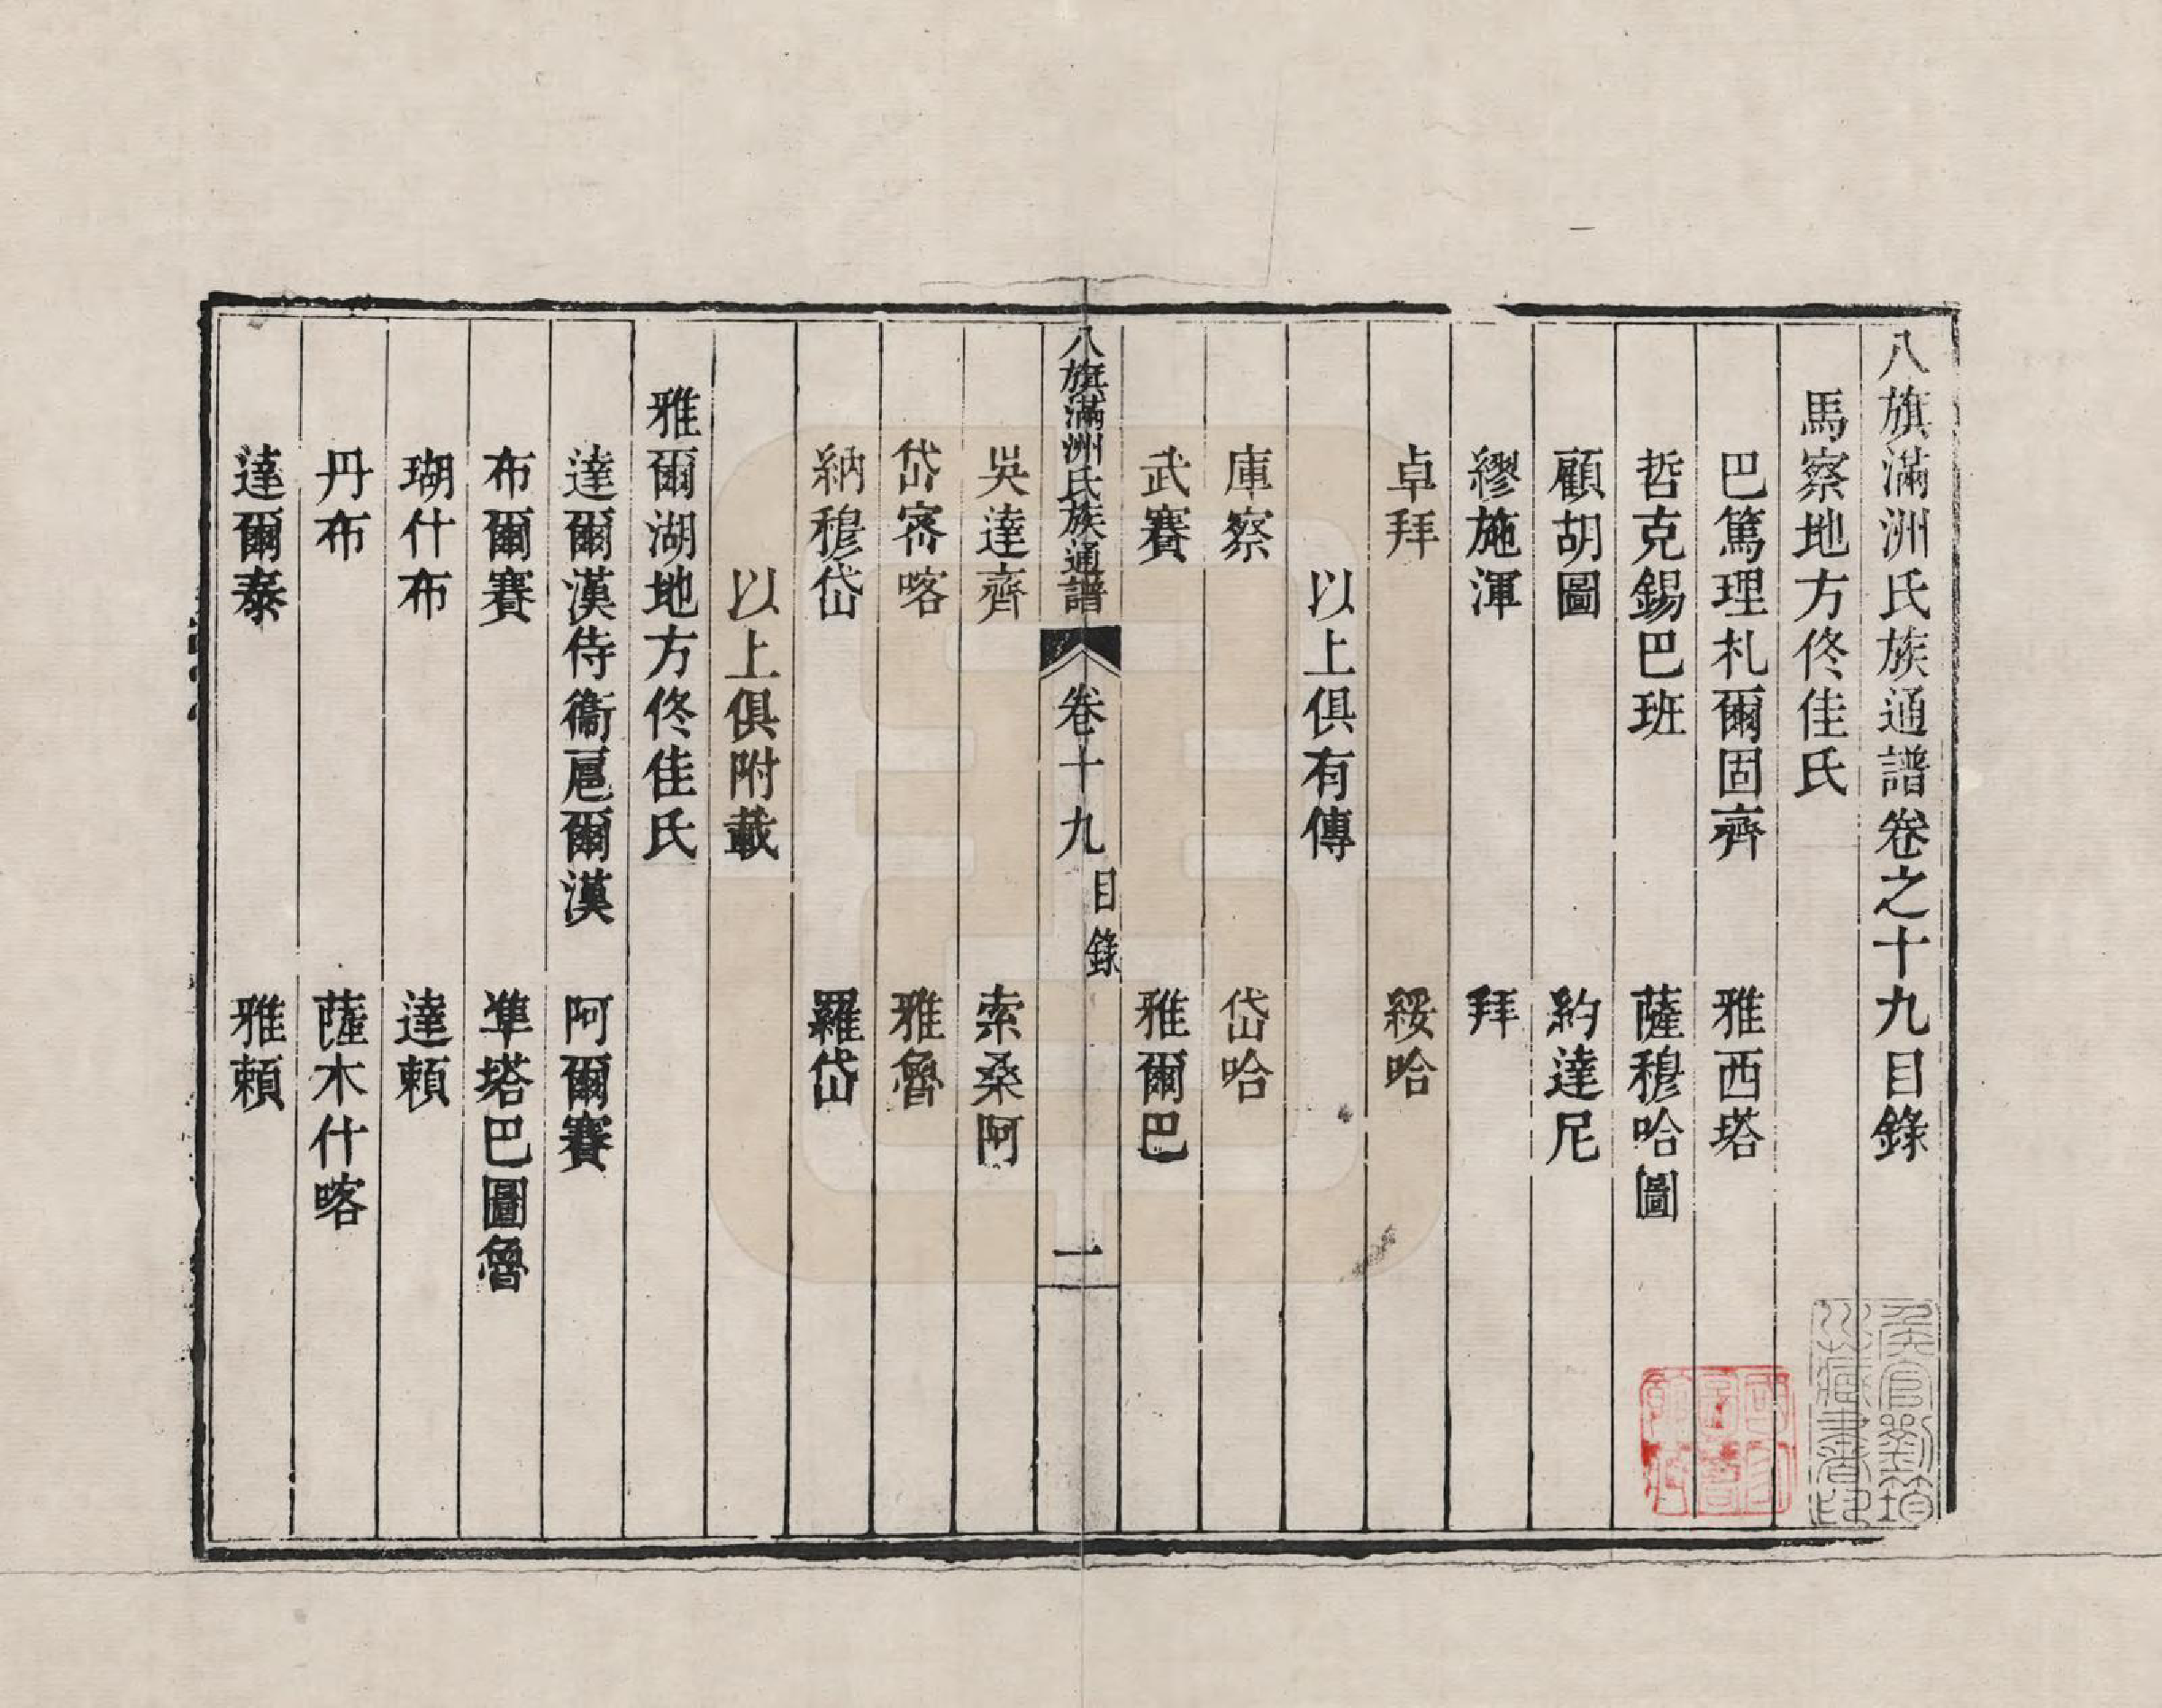 八旗滿洲氏族通譜卷之十九目錄
馬察地方佟佳氏
巴篤理札爾固齊　雅西塔
哲克錫巴班　薩穆哈圖
顧胡圖　約達尼
繆施渾　拜
卓拜　綏哈
以上俱有傳
庫察　岱哈
武賽　雅爾巴
八旗滿洲氏族通譜　卷十九　目錄　一
吳達齊　索桑阿
岱喀　雅魯
納穆岱　羅岱
以上俱附載
雅爾湖地方佟佳氏
達爾漢侍衞扈爾漢　阿爾賽
布爾賽　準塔巴圖魯
瑚什布　達賴
丹布　薩木什喀
達爾泰　雅賴
侯官劉筠川藏書印